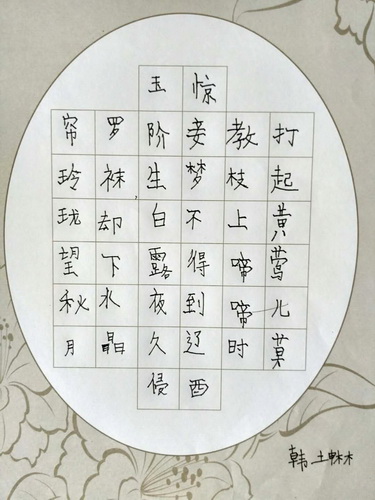 打起黄莺儿莫
教枝上啼啼时
惊妾梦不得到辽西
玉阶生白露夜久侵
罗袜却下水晶
帘玲珑望秋月
韩